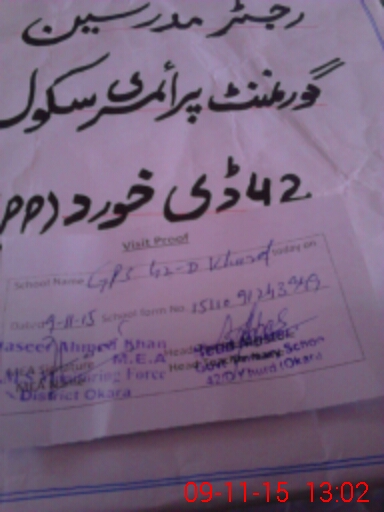 رجسٹر مدرسین
گورنمنٹ پرائمری سکول
42 ڈی خورد (PP
Visit Proof
School Name GPS 42-D Khurd today on
Dated 9-11-15 School form No.
Naseer Ahmed Khan
MEA Signature M.E.A Head
Monitoring Force
District Okara
Head Master
Govt Primary School
42/D Khurd (Okara
09-11-15 13:02